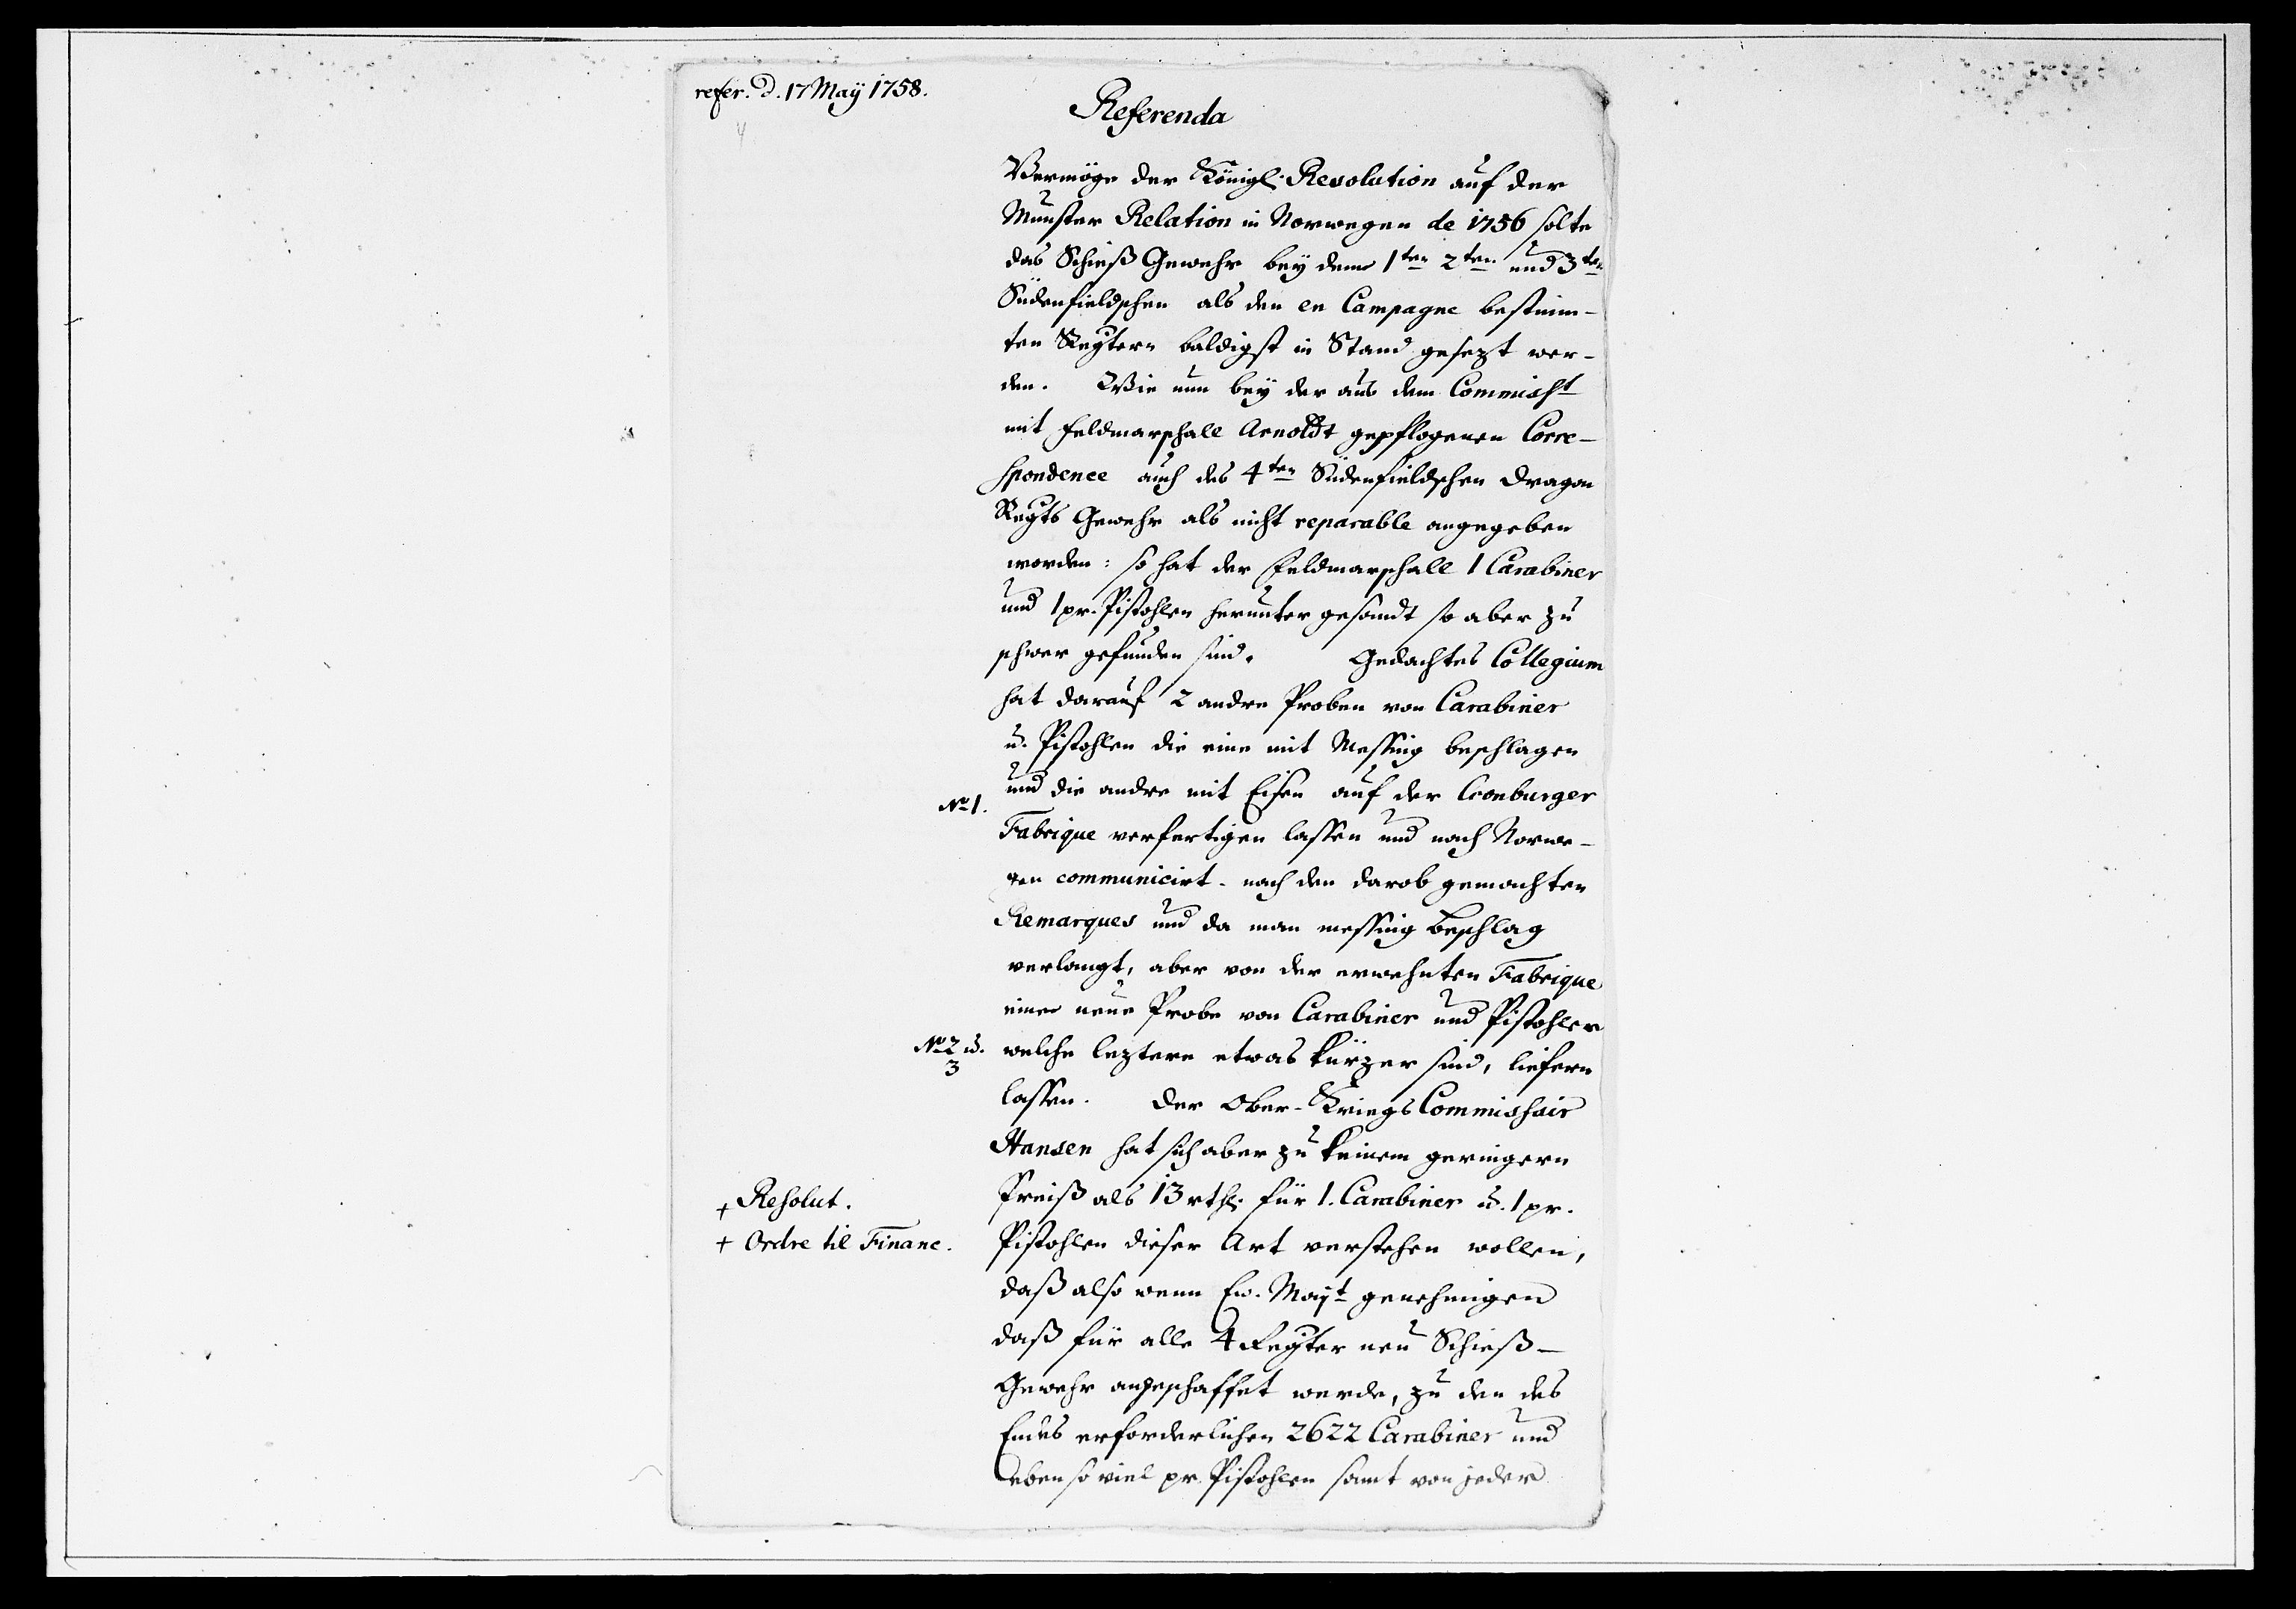 refer. d. 17 Maÿ 1758.
Referenda
Vermöge der Königl. Resolution auf der
Munster Relation in Norwegen de 1756 solte
das Schieß Gewehr beÿ dem 1ten 2ten und 3ten
Südenfieldschen als den en Campagne bestimm-
ten Regtern baldigst in Stand gesezt wer-
den. Wie nun beÿ der aus dem Commisst
mit Feldmarschall Arnoldt gepflogenen Corre-
spondence auch des 4ten Südenfieldschen Dragon
Regts Gewehr als nicht reparable angegeben
worden: so hat der Feldmarschall 1 Carabiner
und 1 pr. Pistohlen herunter gesandt so aber zu
schwer gefunden sind. Gedachtes Collegium
hat darauf 2 andre Proben von Carabiner
u. Pistohlen die eine mit Messing beschlagen
und die andre mit Eisen auf der Cronburger
No 1.
Fabrique verfertigen lassen und nach Norwe-
gen communicirt. nach den darob gemachten
Remarques und da man messing Beschlag
verlangt, aber von der erwehnten Fabrique
eine neue Probe von Carabiner und Pistohlen
No 2 u.
3
welche leztere etwas kürzer sind, liefern
lassen. Der Ober-Kriegs Commissair
Hansen hat sich aber zu keinem geringern
+ Resolut.
Preiß als 13 rthl. für 1. Carabiner u. 1 pr.
+ Ordre til Financ.
Pistohlen dieser Art verstehen wollen,
daß also wenn Ew. Majt genehmigen
daß für alle 4 Regter neu Schieß-
Gewehr angeschaffet werde, zu den des
Endes erforderlichen 2622 Carabiner und
eben so viel pr. Pistohlen samt von jeder